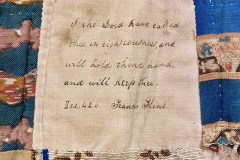 I the Lord have called
thee in righteousness, and
will hold thine hand,
and will keep thee.
Isa. 42.6. Frances Flint.